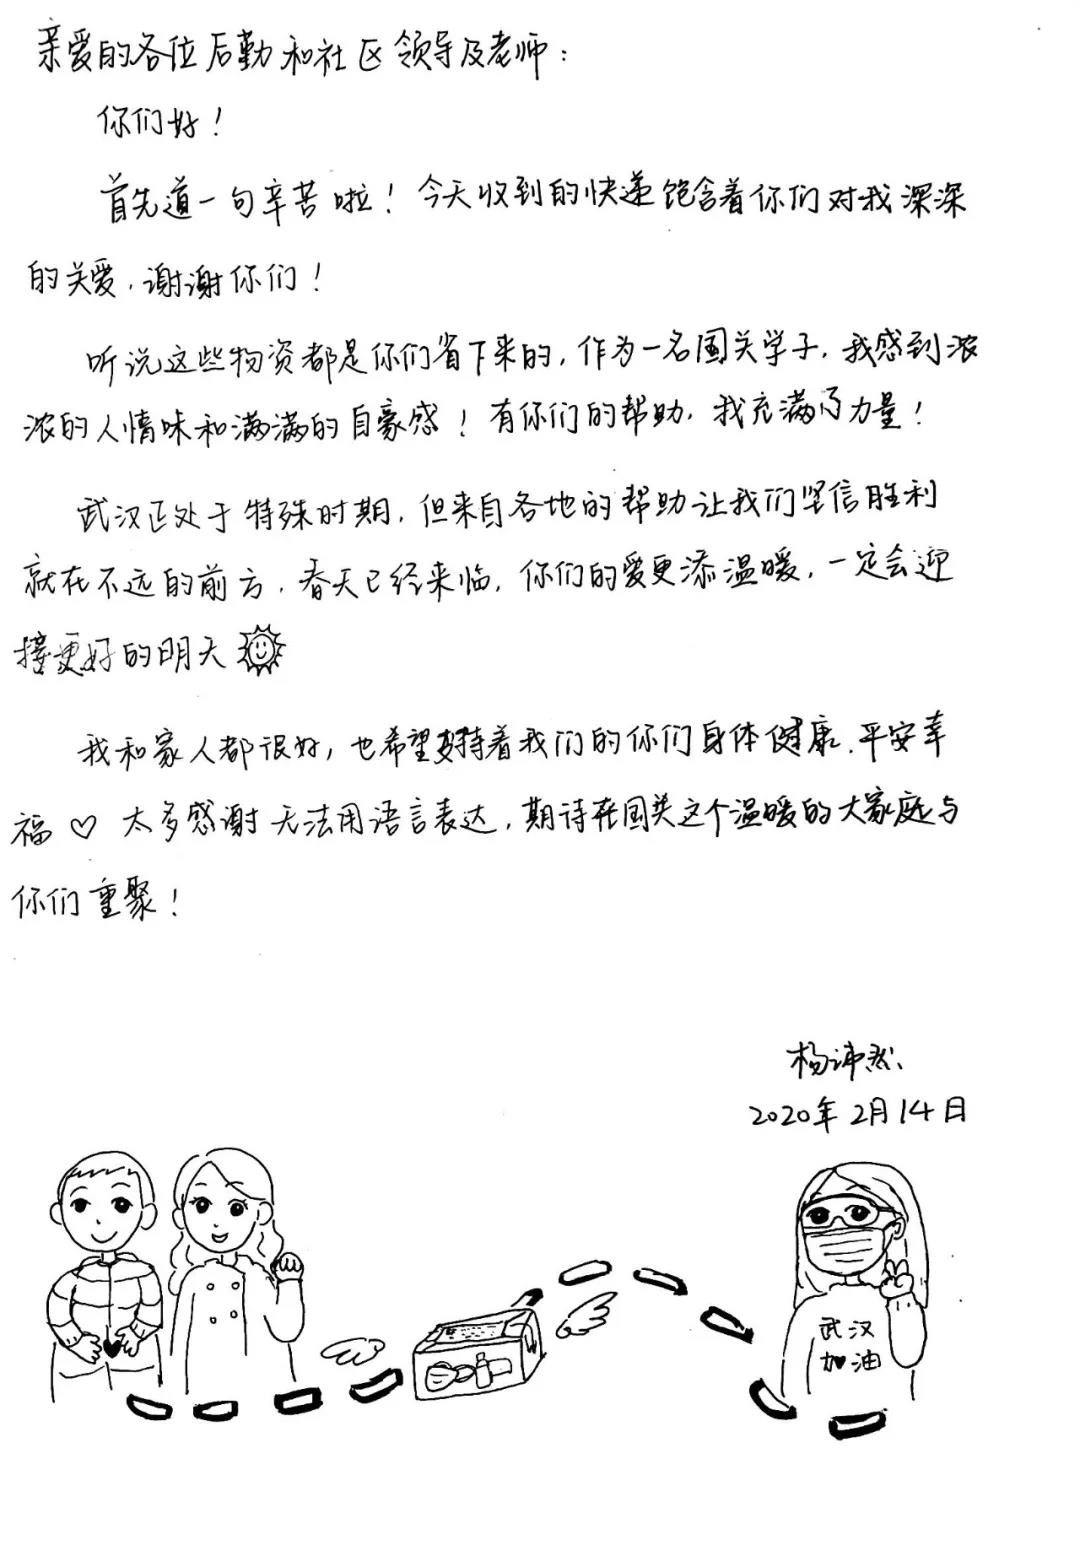 亲爱的各位后勤和社区领导及老师：
你们好！
首先道一句辛苦啦！今天收到的快递饱含着你们对我深深
的关爱，谢谢你们！
听说这些物资都是你们省下来的，作为一名国关学子，我感到浓
浓的人情味和满满的自豪感！有你们的帮助，我充满了力量！
武汉正处于特殊时期，但来自各地的帮助让我们坚信胜利
就在不远的前方，春天已经来临，你们的爱更添温暖，一定会迎
接更好的明天
我和家人都很好，也希望支持着我们的你们身体健康、平安幸
福♡ 太多感谢无法用语言表达，期待在国关这个温暖的大家庭与
你们重聚！
杨沛然
2020年2月14日
武汉
加油